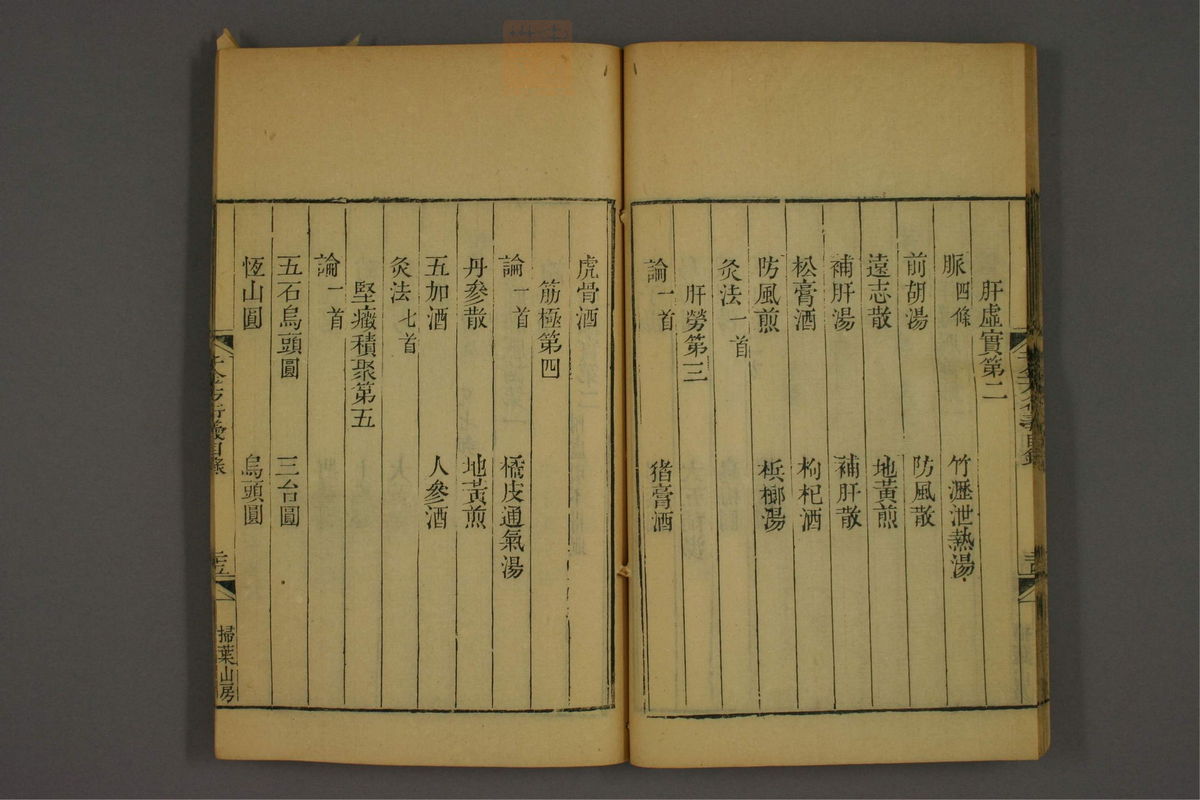 肝虛實第二
脈四條 竹瀝泄熱湯
前胡湯 防風散
遠志散 地黃煎
補肝湯 補肝散
松膏酒 枸杞酒
防風煎 檳榔湯
灸法一首
肝勞第三
論一首 猪膏酒
虎骨酒
筋極第四
論一首 橘皮通氣湯
丹參散 地黃煎
五加酒 人參酒
灸法七首
堅癥積聚第五
論一首
五石烏頭圓 三台圓
恆山圓 烏頭圓
千金方衍義目錄 三五 掃葉山房